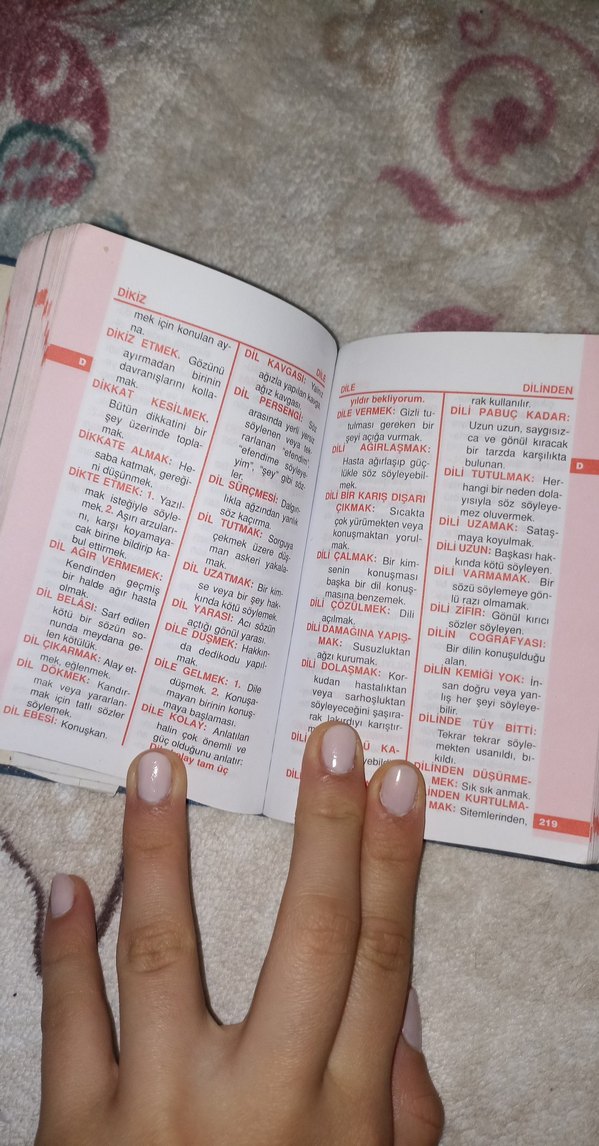 DİKİZ
mek için konulan ay-
na.
DİKİZ ETMEK. Gözünü
ayırmadan birinin
davranışlarını kolla-
mak.
DİKKAT KESİLMEK.
Bütün dikkatini bir
şey üzerinde topla-
mak.
DİKKATE ALMAK: He-
saba katmak, gereği-
ni düşünmek.
DİKTE ETMEK: 1. Yazıl-
mak isteğiyle söyle-
mek, 2. Aşırı arzuları-
nı, karşı koyamaya-
cak birine bildirip ka-
bul ettirmek.
DİL AĞIR VERMEMEK:
Kendinden geçmiş
bir halde ağır hasta
olmak.
DİL BELÂSI: Sarf edilen
kötü bir sözün so-
nunda meydana ge-
len kötülük.
DİL ÇIKARMAK: Alay et-
mek, eğlenmek.
DİL DÖKMEK: Kandır-
mak veya yararlan-
mak için tatlı sözler
söylemek.
DİL EBESİ: Konuşkan.
DİLE
DİL KAVGASI: Yalnız
ağızla yapılan kavga
ağız kavgası.
DİL PERSENGİ: Söz
arasında yerli yersiz
söylenen veya tek-
rarlanan "efendim"
"efendime söyleye-
yim", "şey" gibi söz-
ler.
DİL SÜRÇMESİ: Dalgın-
lıkla ağızdan yanlık
söz kaçırma.
DİL TUTMAK: Sorguya
çekmek üzere düş-
man askeri yakala-
mak.
DİL UZATMAK: Bir kim-
se veya bir şey hak-
kında kötü söylemek.
DİL YARASI: Acı sözün
açtığı gönül yarası.
DİLE DÜŞMEK: Hakkın-
da dedikodu yapıl-
mak.
DİLE GELMEK: 1. Dile
düşmek. 2. Konuşa-
mayan birinin konuş-
maya başlaması.
DİLE KOLAY: Anlatılan
halin çok önemli ve
güç olduğunu anlatır:
tam üç
D
DİLE
yıldır bekliyorum.
DİLE VERMEK: Gizli tu-
tulması gereken bir
şeyi açığa vurmak.
DİLİ AĞIRLAŞMAK:
Hasta ağırlaşıp güç-
lükle söz söyleyebil-
mek.
DİLİ BİR KARIŞ DIŞARI
ÇIKMAK: Sıcakta
çok yürümekten veya
konuşmaktan yorul-
mak.
DİLİ ÇALMAK: Bir kim-
senin konuşması
başka bir dil konuş-
masına benzemek.
DİLİ ÇÖZÜLMEK: Dili
açılmak.
DİLİ DAMAĞINA YAPIŞ-
MAK: Susuzluktan
ağzı kurumak.
DİLİ DOLAŞMAK: Kor-
kudan hastalıktan
veya sarhoşluktan
söyleyeceğini şaşıra-
rak lakırdıyı karıştır-
mak.
DİLİ
DİLİNDEN
rak kullanılır.
DİLİ PABUÇ KADAR:
Uzun uzun, saygısız-
ca ve gönül kıracak
bir tarzda karşılıkta
bulunan.
DİLİ TUTULMAK: Her-
hangi bir neden dola-
yısıyla söz söyleye-
mez oluvermek.
DİLİ UZAMAK: Sataş-
maya koyulmak.
DİLİ UZUN: Başkası hak-
kında kötü söyleyen.
DİLİ VARMAMAK. Bir
sözü söylemeye gön-
lü razı olmamak.
DİLİ ZIFIR: Gönül kırıcı
sözler söyleyen.
DİLİN COĞRAFYASI:
Bir dilin konuşulduğu
alan.
DİLİN KEMİĞİ YOK: İn-
san doğru veya yan-
lış her şeyi söyleye-
bilir.
DİLİNDE TÜY BİTTİ:
Tekrar tekrar söyle-
mekten usanıldı, bı-
kıldı.
DİLİNDEN DÜŞÜRME-
MEK: Sık sık anmak.
KURTULMA-
MAK: Sitemlerinden,
D
219